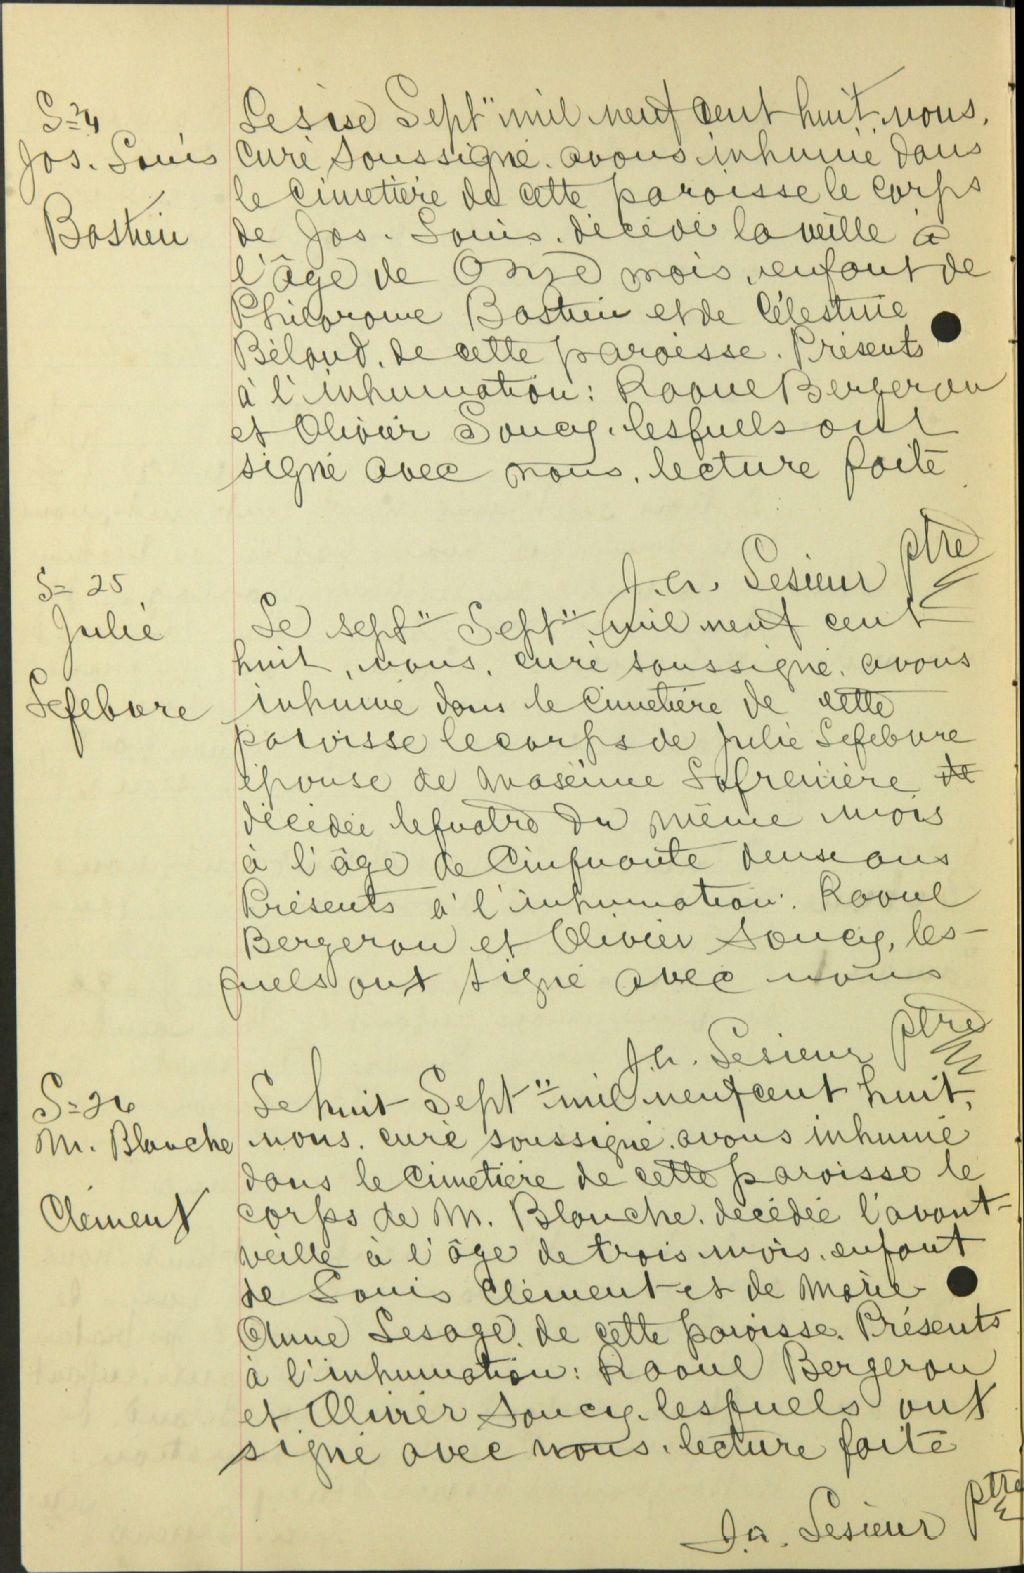 S=24
Jos. Louis
Bastien
Le six Sept" mil neuf cent huit, nous,
curé soussigné, avons inhumé dans
le cimetière de cette paroisse le corps
de Jos. Louis, décédé la veille à
l'âge de Onze mois, enfant de
Philorome Bastien et de Célestine
Béland, de cette paroisse. Présents
à l'inhumation: Raoul Bergeron
et Olivier Soucy, lesquels ont
signé avec nous, lecture faite
J.A. Lesieur ptre
S= 25
Julie
Lefebvre
Le sept" Sept" mil neuf cent
huit, nous, curé soussigné, avons
inhumé dans le cimetière de cette
paroisse le corps de Julie Lefebvre
épouse de Maxime Lafrenière de
décédée le quatre du même mois
à l'âge de Cinquante deux ans
Présents à l'inhumation: Raoul
Bergeron et Olivier Soucy, les-
quels ont signé avec nous
J.A. Lesieur ptre
S=26
M. Blanche
Clément
Le huit Sept" mil neuf cent huit,
nous, curé soussigné, avons inhumé
dans le cimetière de cette paroisse le
corps de M. Blanche, décédée l'avant-
veille à l'âge de trois mois, enfant
de Louis Clément et de Marie
Anne Lesage, de cette paroisse. Présents
à l'inhumation: Raoul Bergeron
et Olivier Soucy, lesquels ont
signé avec nous, lecture faite
J.A. Lesieur ptre